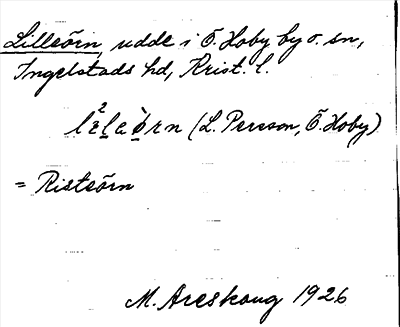 Lilleörn, udde i Ö. Hoby by o. sn,
Ingelstads hd, Krist. l.
(L. Persson, Ö. Hoby)
= Risteörn
M. Areskoug 1926